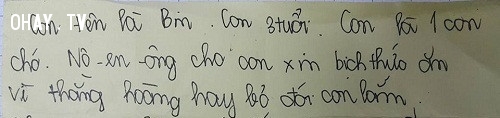 Con tên là Bin. Con 3 tuổi. Con là 1 con
chó. Nô-en ông cho con xin bịch thức ăn
vì thằng hoàng hay bỏ đói con lắm.
OHAY TV